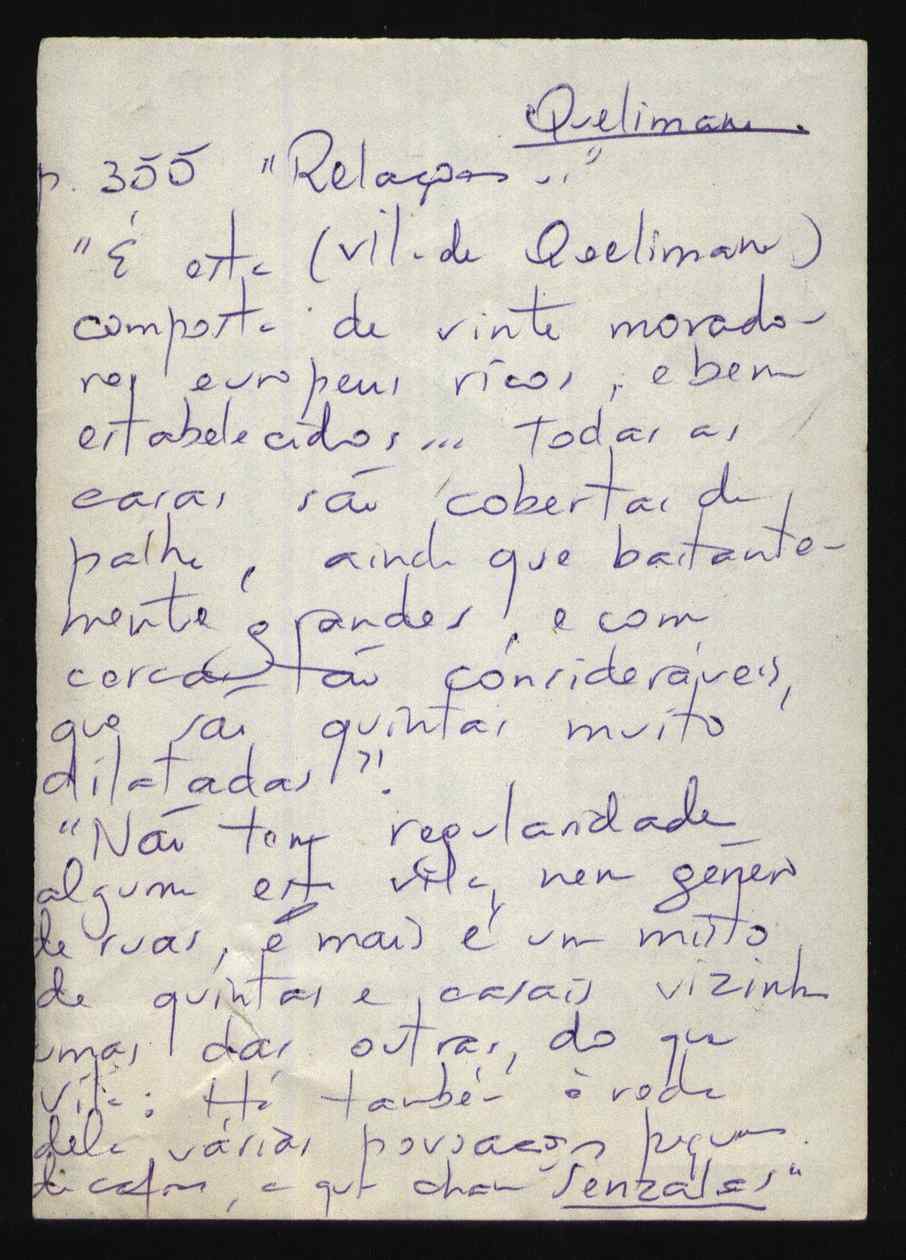 Quelimane.
p. 355 "Relações..."
"É esta (vila de Quelimane)
composta de vinte morado-
res europeus ricos, e bem
estabelecidos... Todas as
casas são cobertas de
palha, ainda que bastante-
mente grandes, e com
cercas tão consideráveis,
que são quintas muito
dilatadas".
"Não tem regularidade
alguma esta vila, nem género
de ruas, e mais é um misto
de quintas e casais vizinhas
umas das outras, do que
vila: Há também à roda
dela várias povoações pequenas
de cafres, a que chamam "senzalas"